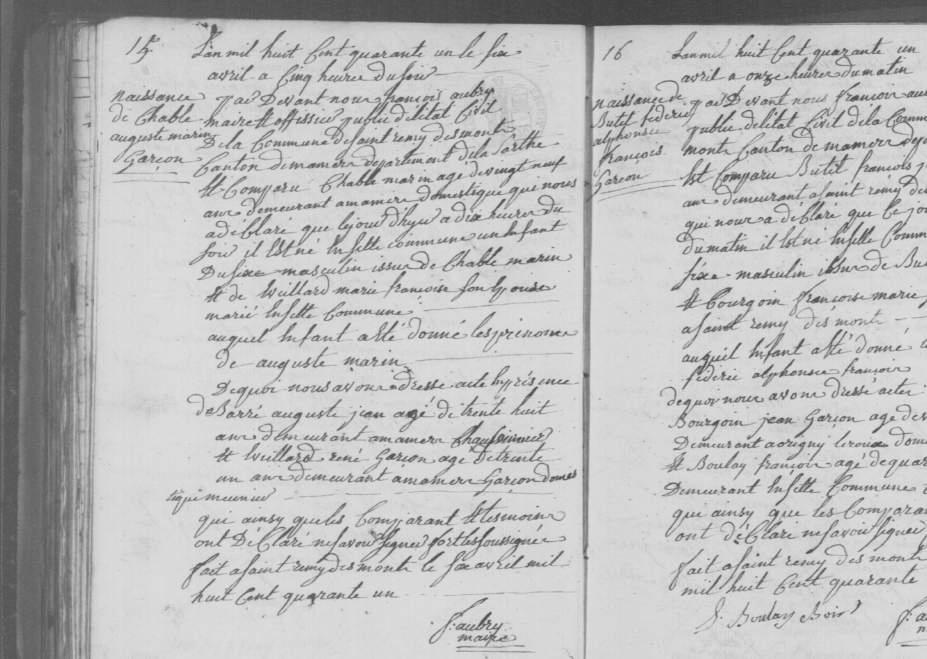 15
L'an mil huit Cent quarante un le six
avril a Cinq heures du soir
naissance
de Chable
auguste marin
Garçon
par Devant nous françois aubry
maire & offissier public de letat Civil
De la Commune de saint remy des monts
Canton de mamers departement de la sarthe
Est Comparu Chable marin agé de vingt neuf
ans demeurant a mamers domestique qui nous
a déClaré que le jour d'hyer a dix heures du
soir il Est né En sette commune un Enfant
Du sexe masculin issue de Chable marin
Et de Wuillard marie françoise son Epouse
marié En sette Commune
auquel Enfant a Eté donné les prénoms
de auguste marin
De quoi nous avons adressé acte En présence
de Barré auguste jean agé de trente huit
ans demeurant a mamers
Et Wuillard rené Garçon agé de trente
un ans demeurant a mamers Garçon domes
tique meunier
qui ainsy que les Comparant Et temoins
ont DéClaré ne savoir signer fort les soussignés
fait a saint remy des monts le six avril mil
huit Cent quarante un
f. aubry
maire
16
L'an mil huit Cent quarante un
avril a onze heures du matin
naissance de
Butet féderic
alphonsse
françois
Garcon
par Devant nous françois au
public de letat Civil de la Comm
monts Canton de mamers dep
Est Comparu Butet françois j
ans demeurant a saint remy de
qui nous a déClaré que Ce jo
du matin il Est né En sette Comm
sexe masculin issue de Bu
Et Bourgoin françoise marie
a saint remy des monts
auquel Enfant a Eté donné
féderic alphonsse françois
de quoi nous avons dressé acte
Bourgoin jean Garçon agé de
Demeurant a origny le roux dom
Et Boulay françois agé de quar
Demeurant En sette Commune
qui ainsy que les Compara
ont déClaré ne savoir signer
fait a saint remy des monts
mil huit Cent quarante
f. Boulay
f. au
m